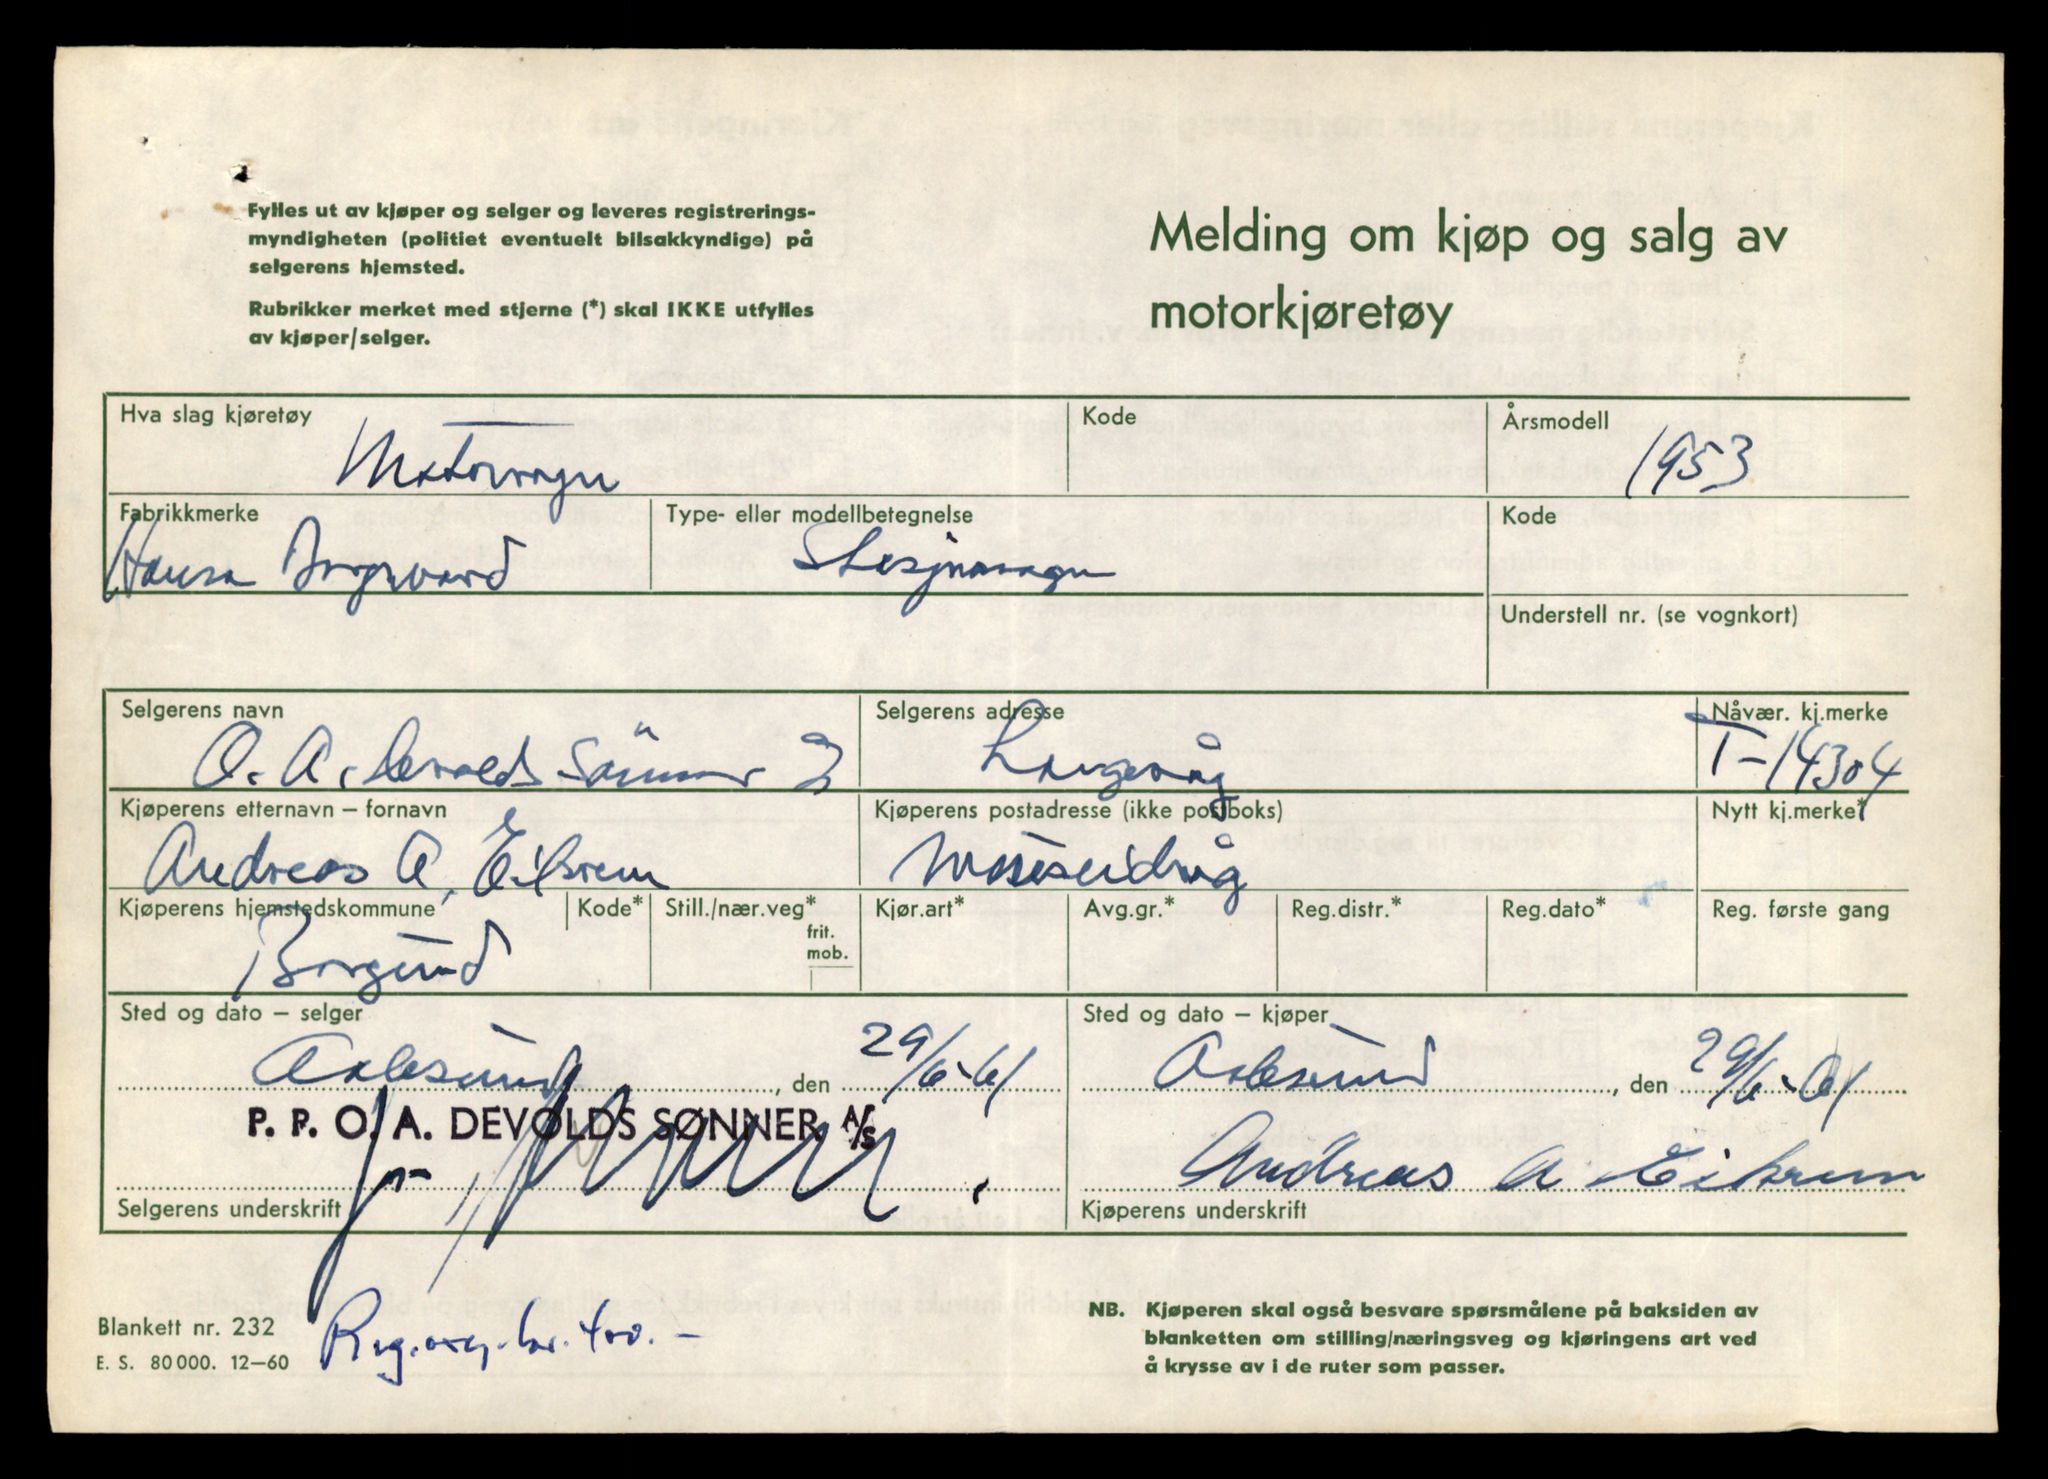 Fylles ut av kjøper og selger og leveres registrerings-
myndigheten (politiet eventuelt bilsakkyndige) på
selgerens hjemsted.
Rubrikker merket med stjerne (*) skal IKKE utfylles
av kjøper/selger.
Melding om kjøp og salg av
motorkjøretøy
Hva slag kjøretøy
Motorvogn
Kode
Årsmodell
1953
Fabrikkmerke
Hansa Borgward
Type- eller modellbetegnelse
Stasjonsvogn
Kode
Understell nr. (se vognkort)
Selgerens navn
O. A. Devolds Sønner
Selgerens adresse
Langevåg
Nåvær. kj.merke
T-14304
Kjøperens etternavn – fornavn
Andreas A. Eikrem
Kjøperens postadresse (ikke postboks)
Nytt kj.merke*
Kjøperens hjemstedskommune
Borgund
Kode*
Still./nær.veg*
frit.
mob.
Kjør.art*
Avg.gr.*
Reg.distr.*
Reg.dato*
Reg. første gang
Sted og dato – selger
Aalesund, den 29/6-61
Sted og dato – kjøper
Aalesund, den 29/6-61
P. P. O. A. DEVOLDS SØNNER A/S
Selgerens underskrift
Andreas A Eikrem
Kjøperens underskrift
Blankett nr. 232
E. S. 80000. 12–60
NB. Kjøperen skal også besvare spørsmålene på baksiden av
blanketten om stilling/næringsveg og kjøringens art ved
å krysse av i de ruter som passer.